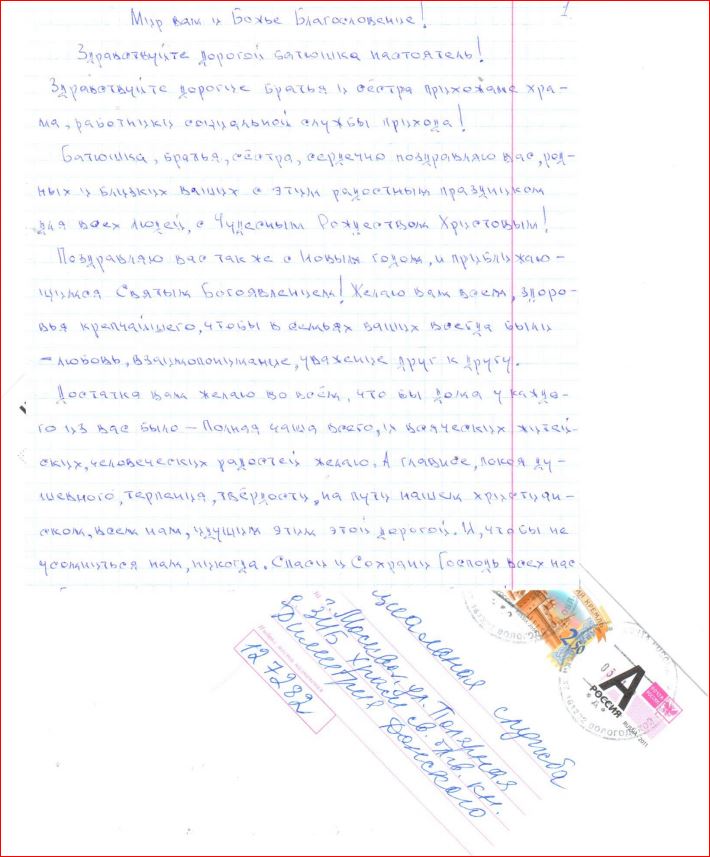 1.
Мир вам и Божье Благословение!
Здравствуйте дорогой батюшка настоятель!
Здравствуйте дорогие братья и сёстра прихожане хра-
ма, работники социальной службы прихода!
Батюшка, братья, сёстра, сердечно поздравляю вас, род-
ных и близких ваших с этим радостным праздником
для всех людей, с Чудесным Рождеством Христовым!
Поздравляю вас также с Новым годом, и приближаю-
щимся Святым Богоявлением! Желаю вам всем, здоро-
вья крепчайшего, чтобы в семьях ваших всегда были
- любовь, взаимопонимание, уважение друг к другу.
Достатка вам желаю во всём, что бы дома у каждо-
го из вас было - Полная чаша всего, и всяческих житей-
ских, человеческих радостей желаю. А главное, покоя ду-
шевного, терпения, твёрдости, на пути нашем христиан-
ском, всем нам, идущим этим этой дорогой. И, чтобы не
усомниться нам, никогда. Спаси и Сохрани Господь всех нас
циальная служба
г. Москва, ул. Полярная
Храм св. блгв. кн.
Димитрия Донского
127282
2.50
А
РОССИЯ
2011